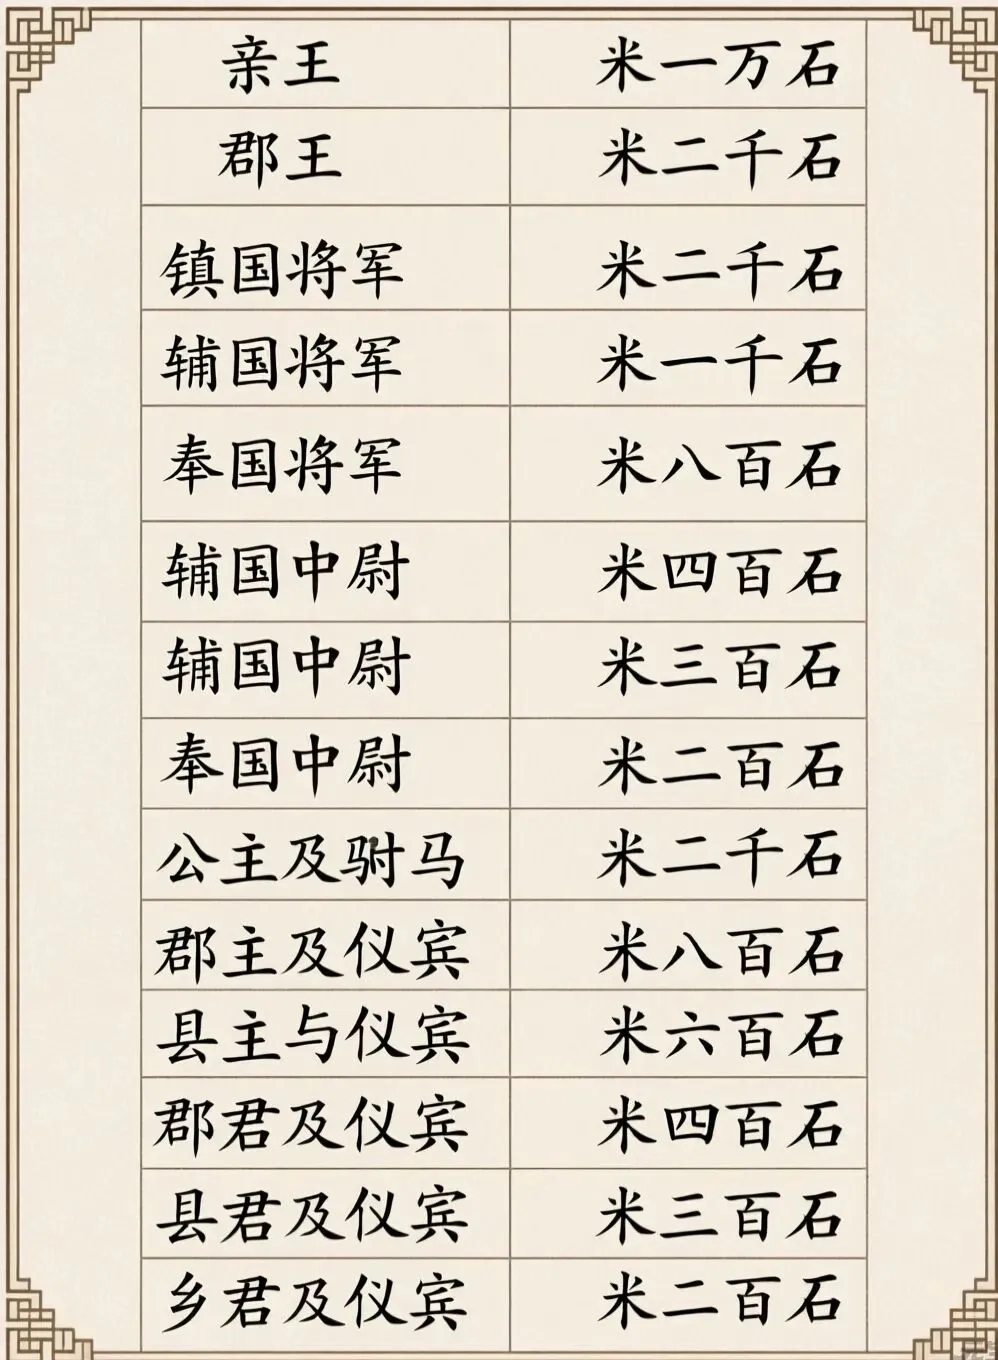 亲王 米一万石
郡王 米二千石
镇国将军 米二千石
辅国将军 米一千石
奉国将军 米八百石
辅国中尉 米四百石
辅国中尉 米三百石
奉国中尉 米二百石
公主及驸马 米二千石
郡主及仪宾 米八百石
县主与仪宾 米六百石
郡君及仪宾 米四百石
县君及仪宾 米三百石
乡君及仪宾 米二百石